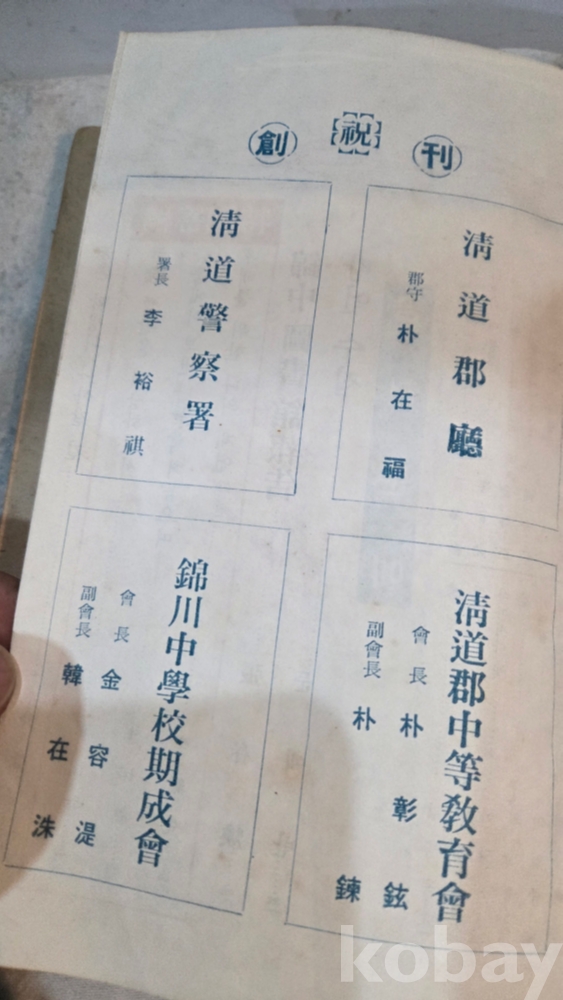 創 祝 刊
淸道郡廳
郡守 朴在福
淸道警察署
署長 李裕祺
淸道郡中等敎育會
會長 朴彰鉉
副會長 朴鍊
錦川中學校期成會
會長 金容湜
副會長 韓在洙
kobay